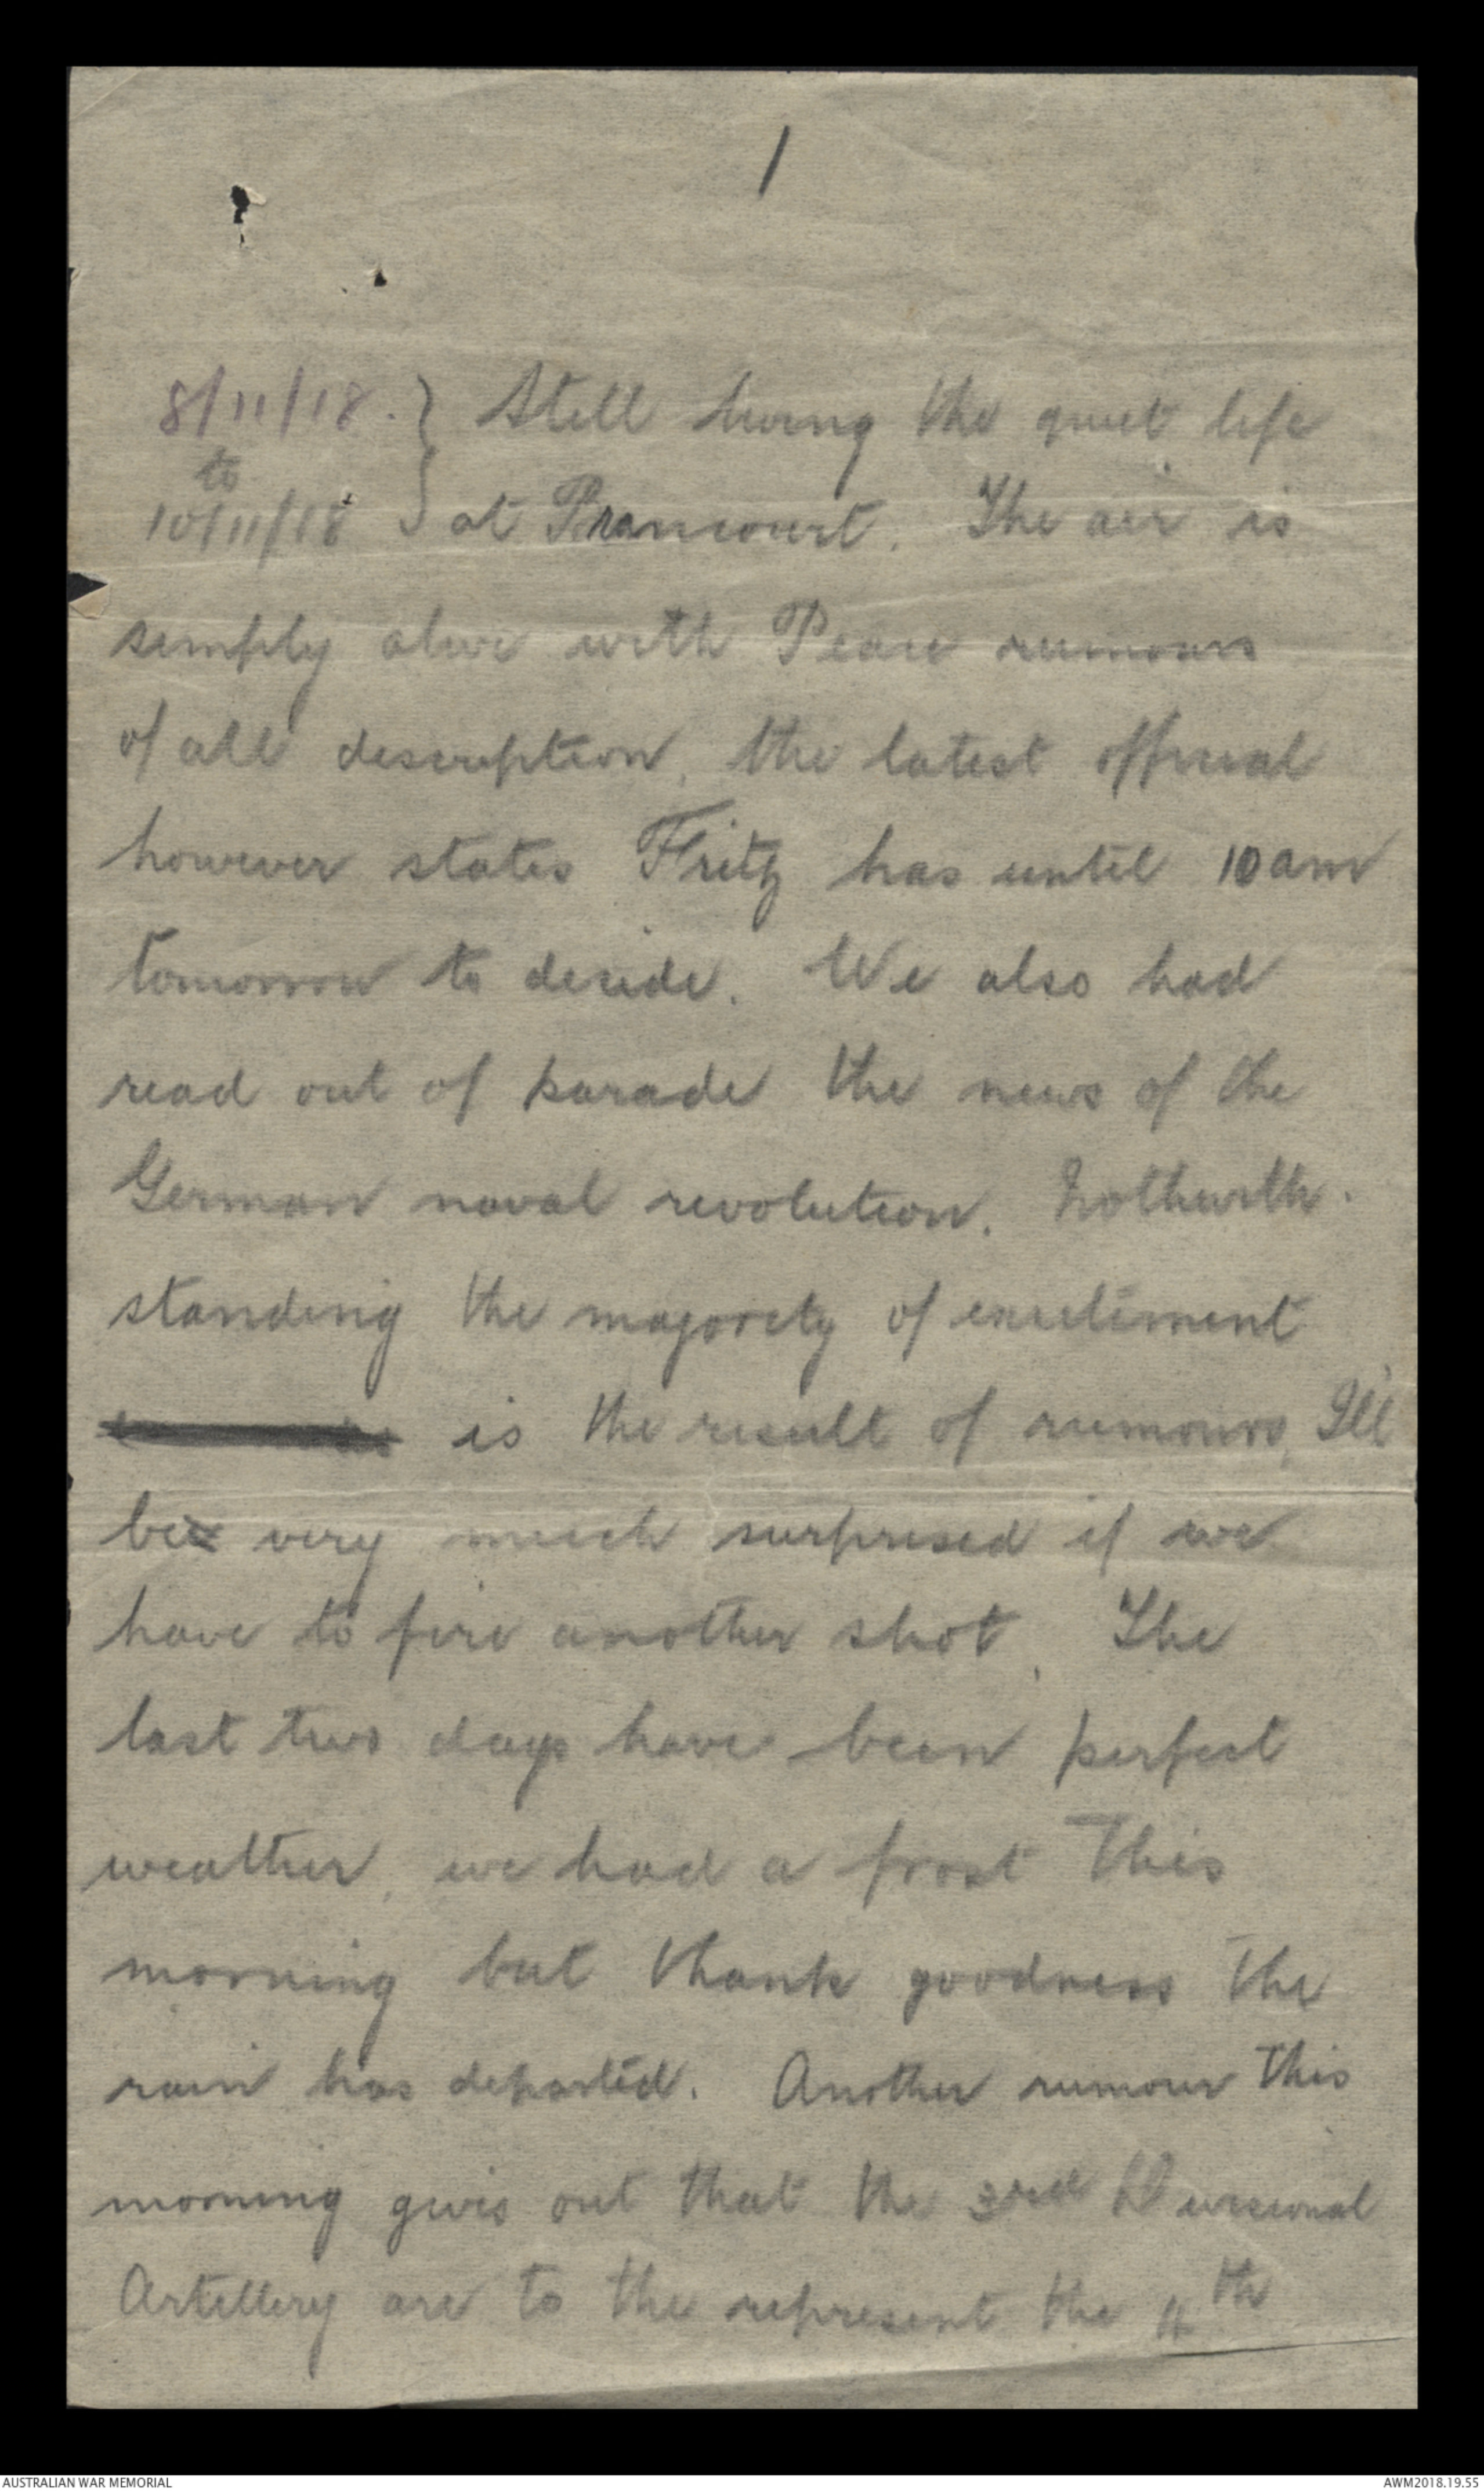 1
8/11/18. } Still living the quiet life
to
10/11/18 } at Brancourt. The air is
simply alive with Peace rumours
of all description, the latest official
however states Fritz has until 10 am
tomorrow to decide. We also had
read out of parade the news of the
German naval revolution. Nothwith-
standing the majority of excitement
is the result of rumours, I'll
be very much surprised if we
have to fire another shot. The
last two days have been perfect
weather, we had a frost this
morning but thank goodness the
rain has departed. Another rumour this
morning gives out that the 3rd Divisional
Artillery are to the represent the 4th
AUSTRALIAN WAR MEMORIAL
AWM2018.19.55